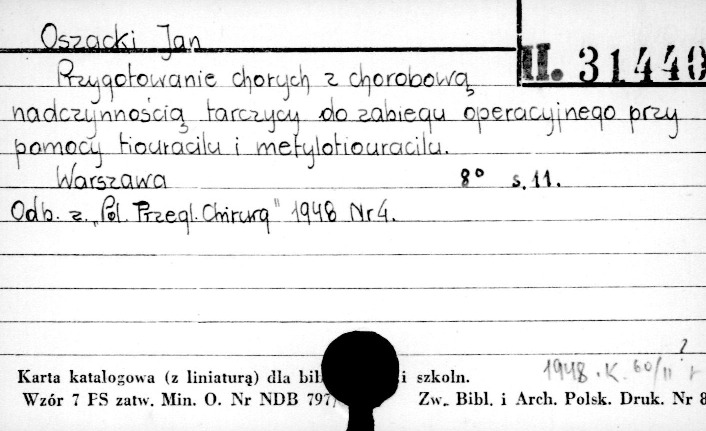 Oszacki Jan
II. 31440
Przygotowanie chorych z chorobową
nadczynnością tarczycy do zabiegu operacyjnego przy
pomocy tiouracilu i metylotiouracilu.
Warszawa 8° s. 11.
Odb. z. „Pol. Przegl. Chirurg" 1948 Nr 4.
1948. K. 60/II
Karta katalogowa (z liniaturą) dla i szkoln.
Wzór 7 PS zatw. Min. O. Nr NDB 797/ Zw. Bibl. i Arch. Polsk. Druk. Nr 8